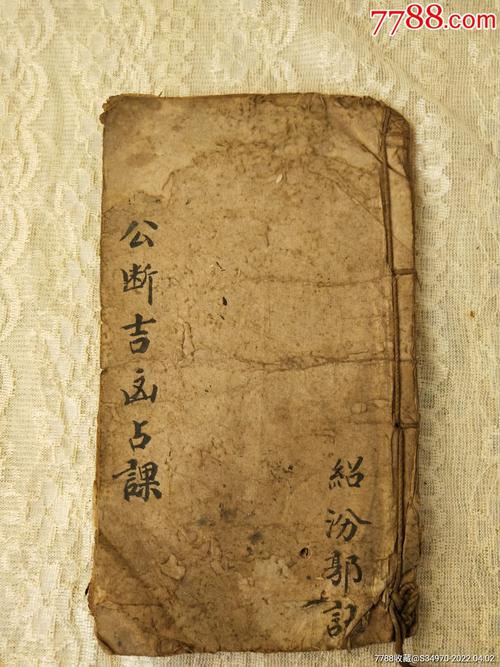 7788.com
公断吉凶占課
紹汾郭記
7788收藏@S34970-2022.04.02